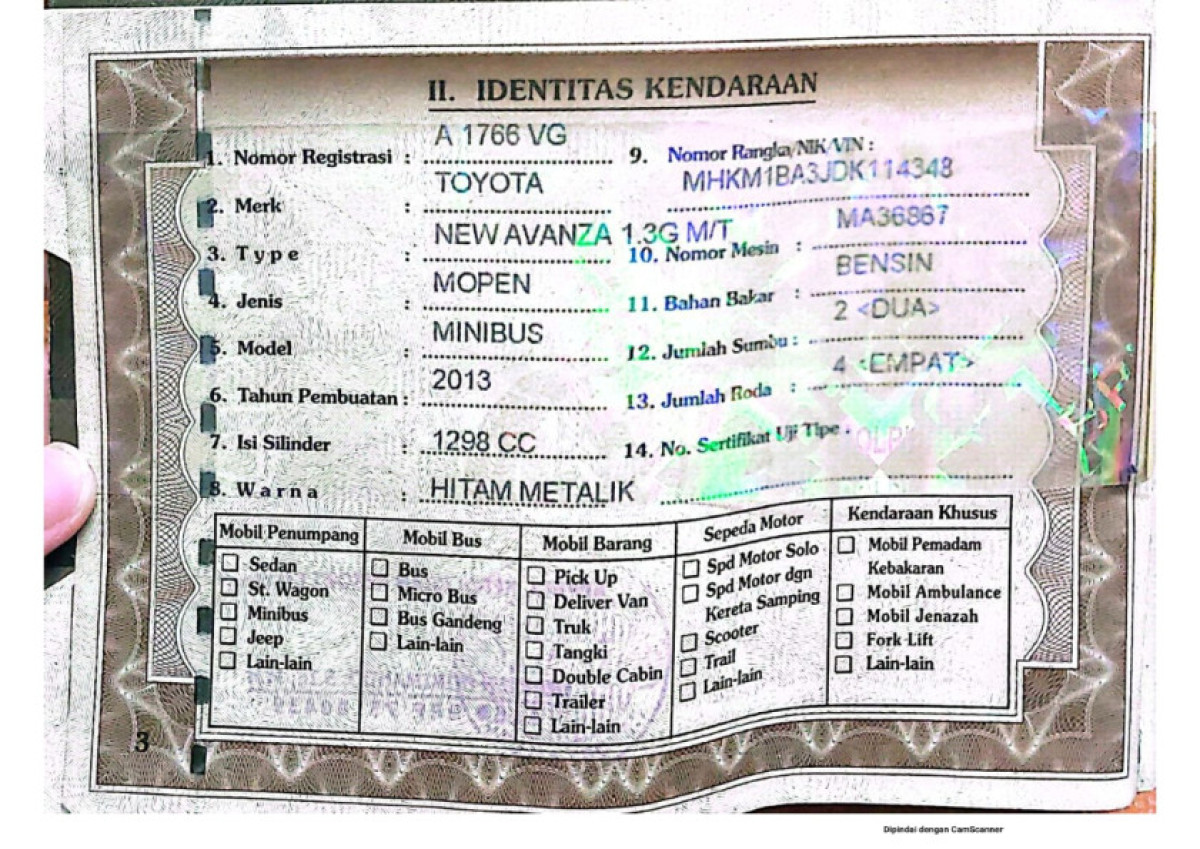 II. IDENTITAS KENDARAAN
1. Nomor Registrasi : A 1766 VG
2. Merk : TOYOTA
3. Type : NEW AVANZA 1.3G M/T
4. Jenis : MOPEN
5. Model : MINIBUS
6. Tahun Pembuatan : 2013
7. Isi Silinder : 1298 CC
8. Warna : HITAM METALIK
9. Nomor Rangka/NIK/VIN :
MHKM1BA3JDK114348
10. Nomor Mesin : MA36867
11. Bahan Bakar : BENSIN
12. Jumlah Sumbu : 2 <DUA>
13. Jumlah Roda : 4 <EMPAT>
14. No. Sertifikat Uji Tipe :
Mobil Penumpang
Sedan
St. Wagon
Minibus
Jeep
Lain-lain
Mobil Bus
Bus
Micro Bus
Bus Gandeng
Lain-lain
Mobil Barang
Pick Up
Deliver Van
Truk
Tangki
Double Cabin
Trailer
Lain-lain
Sepeda Motor
Spd Motor Solo
Spd Motor dgn
Kereta Samping
Scooter
Trail
Lain-lain
Kendaraan Khusus
Mobil Pemadam
Kebakaran
Mobil Ambulance
Mobil Jenazah
Fork Lift
Lain-lain
3
Dipindai dengan CamScanner